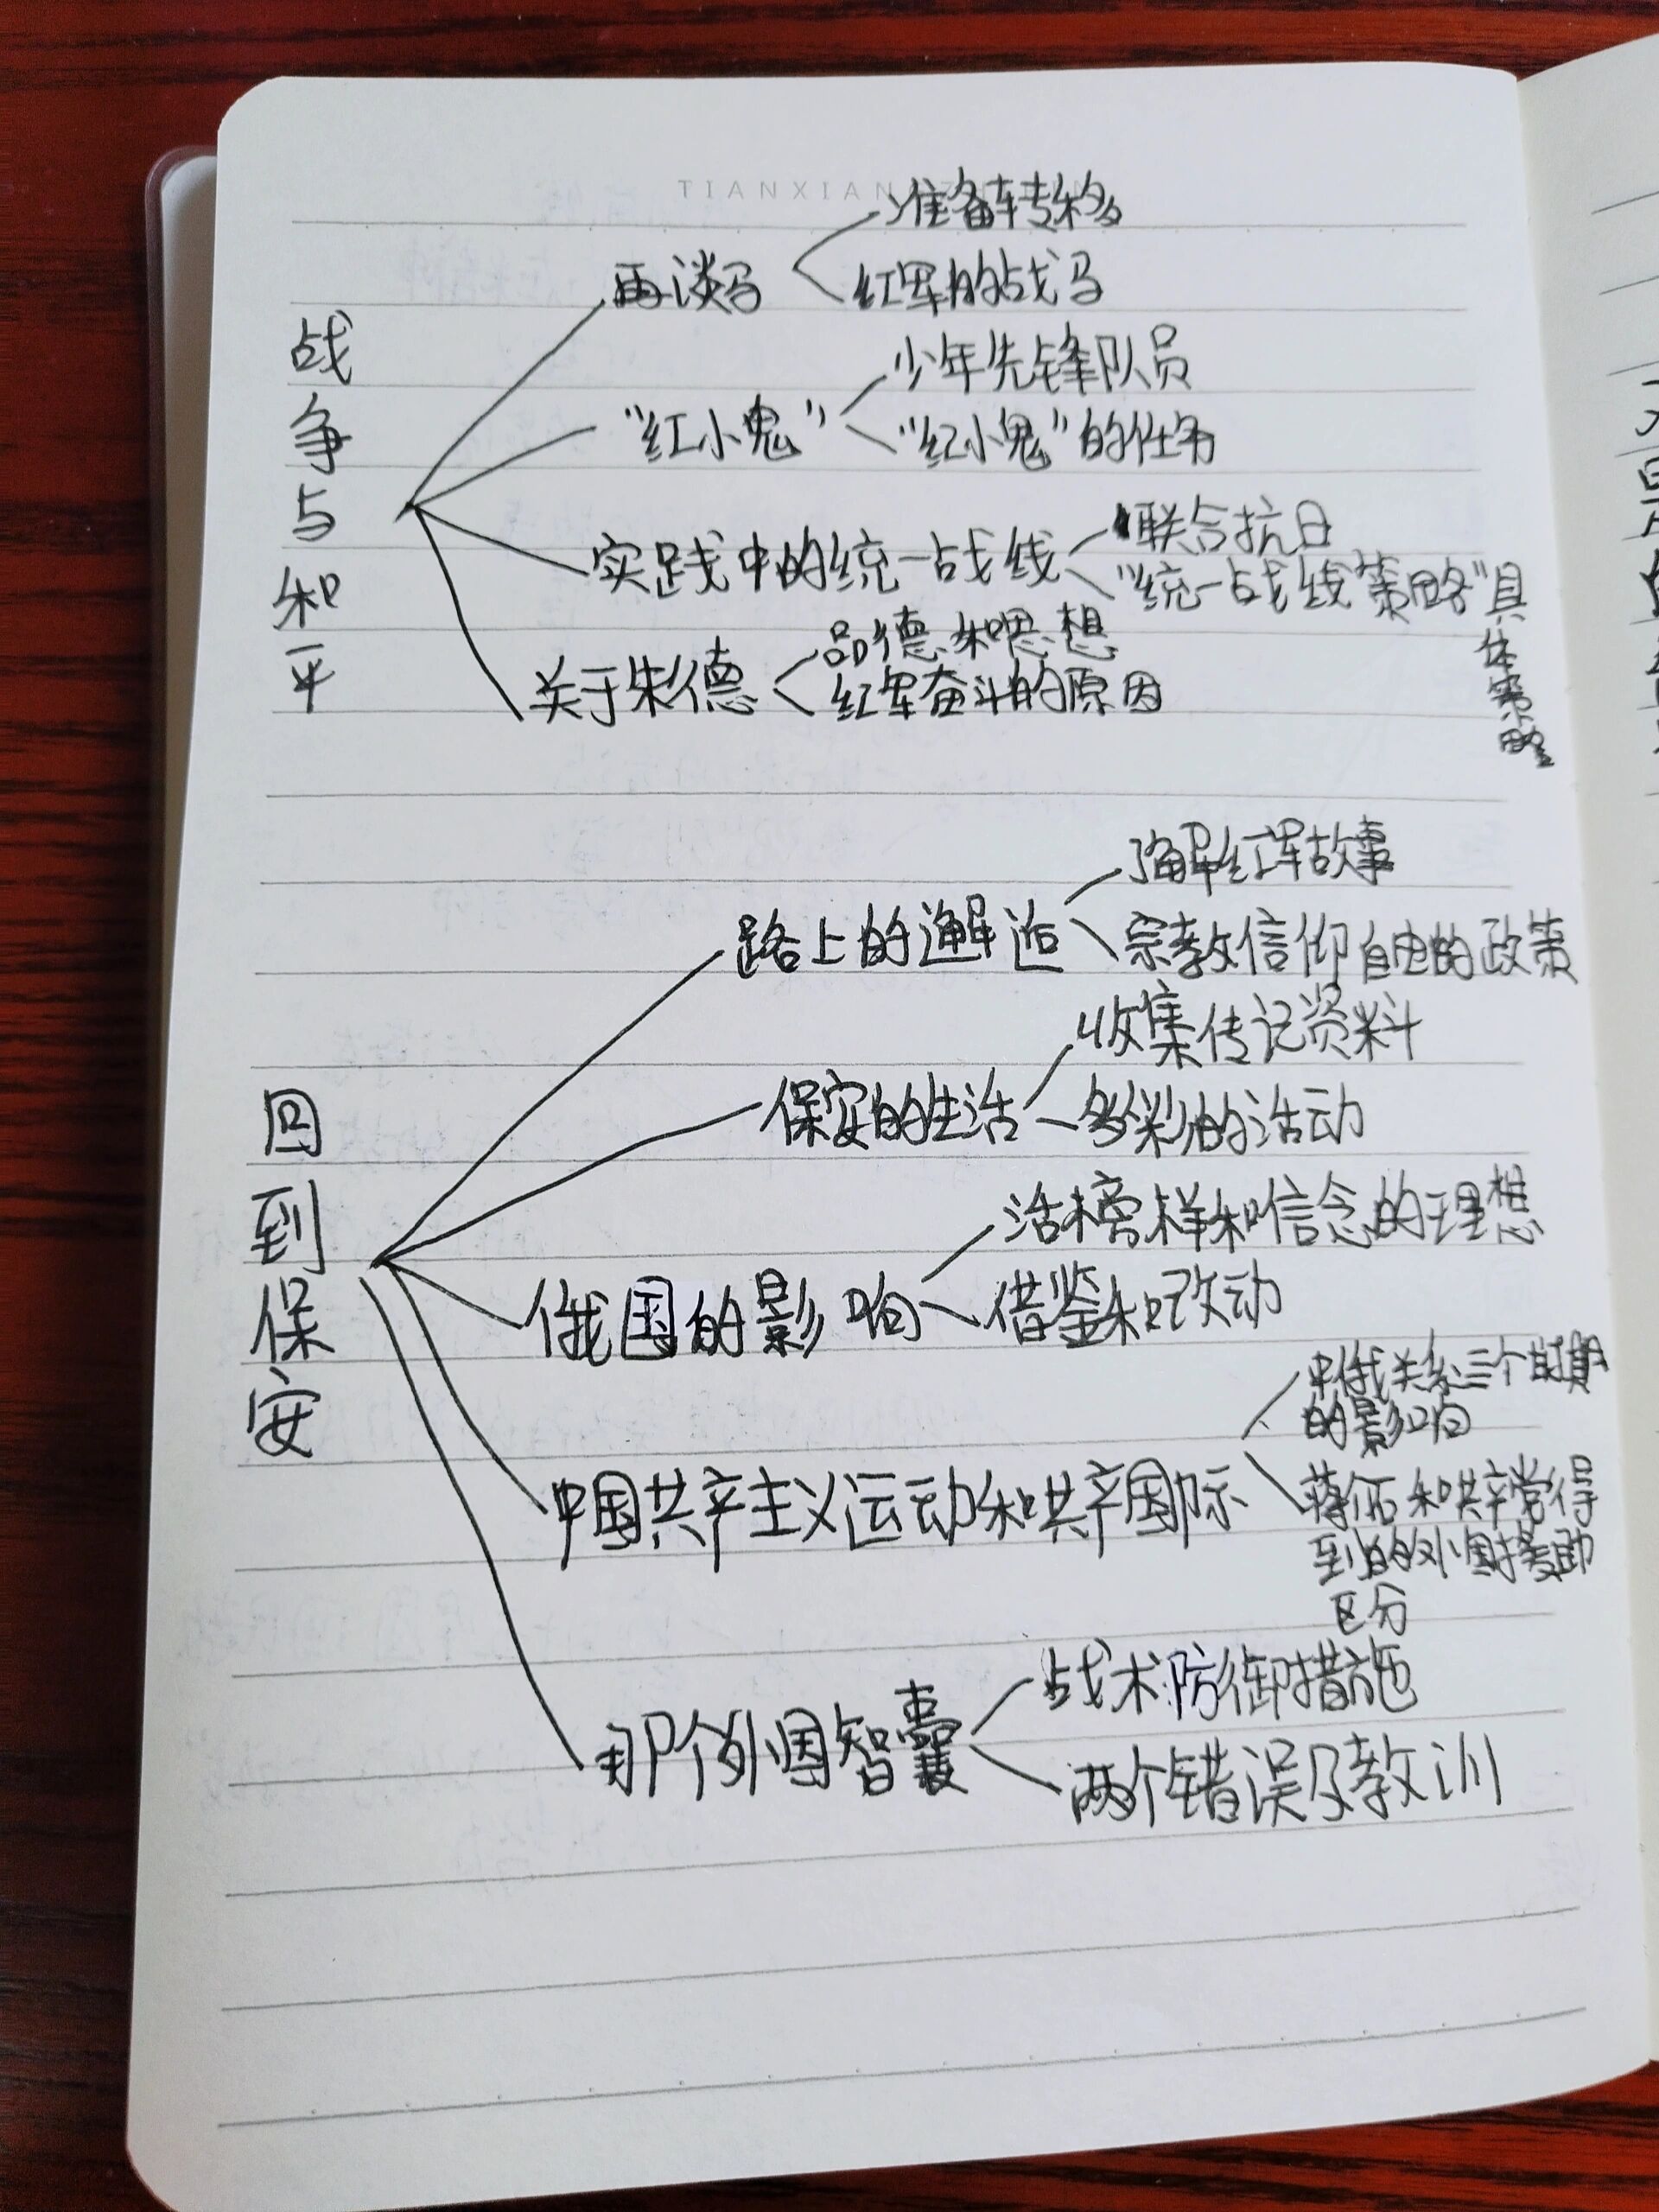 TIANXIAN
战争与和平
再谈马
准备转移
红军的战马
“红小鬼”
少年先锋队员
“红小鬼”的任务
实践中的统一战线
联合抗日
“统一战线策略”具
体策略
关于朱德
品德和思想
红军奋斗的原因
回到保安
路上的邂逅
了解红军故事
宗教信仰自由的政策
保安的生活
收集传记资料
多彩的活动
俄国的影响
活榜样和信念的理想
借鉴和改动
中国共产主义运动和共产国际
中俄关系三个时期
的影响
蒋介石和共产党得
到的外国援助
区分
那个外国智囊
战术防御措施
两个错误及教训